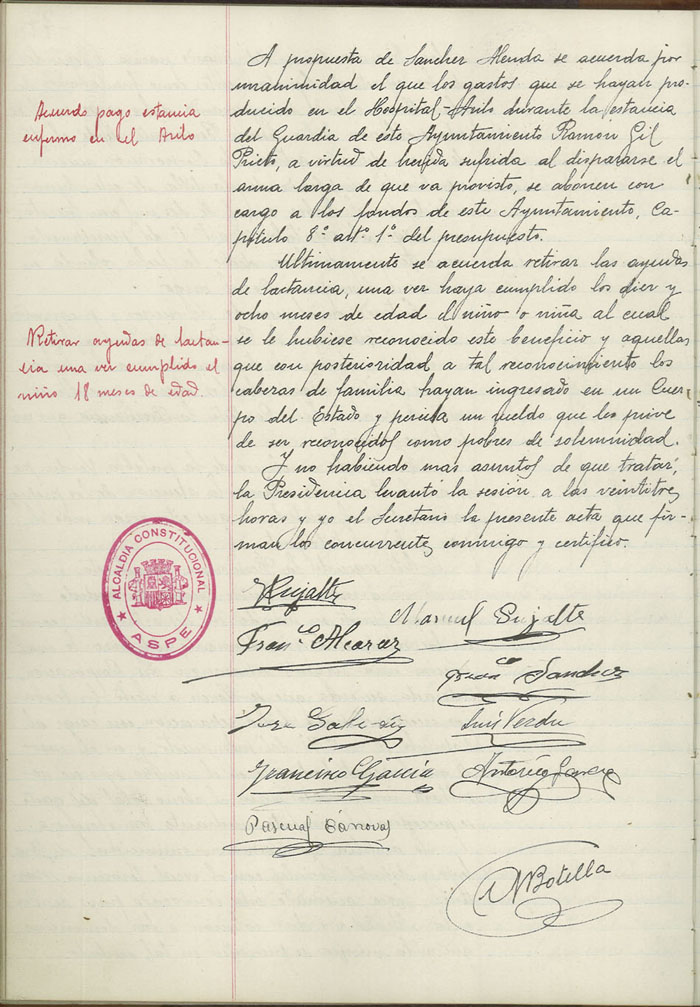 A propuesta de Sanchez Alenda se acuerda por
unanimidad el que los gastos que se hayan pro-
ducido en el Hospital-Asilo durante la estancia
del Guardia de este Ayuntamiento Ramon Gil
Prieto, a virtud de herida sufrida al dispararse el
arma larga de que va provisto, se abonen con
cargo a los fondos de este Ayuntamiento, Ca-
pítulo 8º artº 1º del presupuesto.
Acuerdo pago estancia
enfermo en el Asilo
Ultimamente se acuerda retirar las ayudas
de lactancia, una vez haya cumplido los diez y
ocho meses de edad el niño o niña al cual
se le hubiese reconocido este beneficio y aquellas
que con posterioridad a tal reconocimiento los
cabezas de familia hayan ingresado en un Cuer-
po del Estado y perciba un sueldo que les prive
de ser reconocidos como pobres de solemnidad.
Retirar ayudas de lactan-
cia una vez cumplido el
niño 18 meses de edad.
Y no habiendo mas asuntos de que tratar,
la Presidencia levantó la sesión a las veintitres
horas y yo el Secretario la presente acta que fir-
man los concurrentes conmigo y certifico.
ALCALDIA CONSTITUCIONAL
★ ASPE ★
Pujalte
Manuel Pujalte
Franco Alcaraz
Sanchez
Luis Verdu
Francisco Garcia
Antonio Garcia
Pascual Canovas
Botella